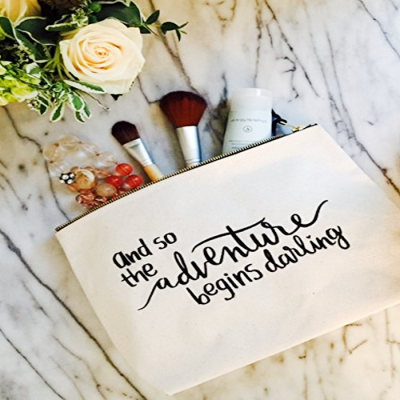 and so
the adventure
begins darling